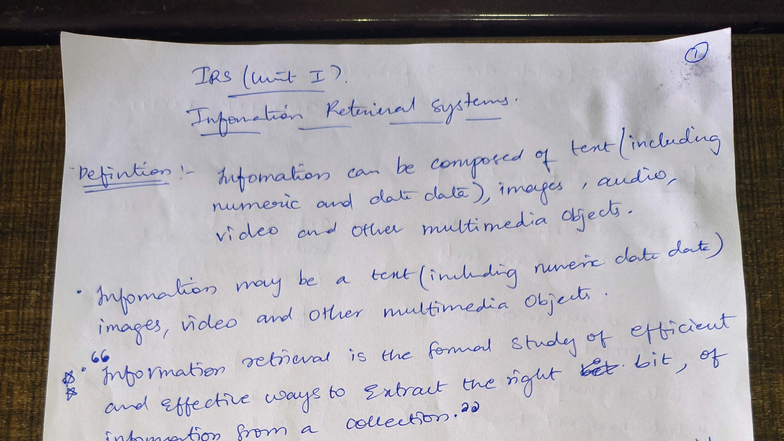 1
IRS (Unit I).
Infomation Retrieval systems.
Defintion :- Infomation can be composed of text (including
numeric and date data), images, audio,
video and other multimedia objects.
• Infomation may be a text (including numeric date date)
images, video and other multimedia objects.
• "Information retrieval is the formal study of efficient
and effective ways to Extract the right bit, of
information from a collection."